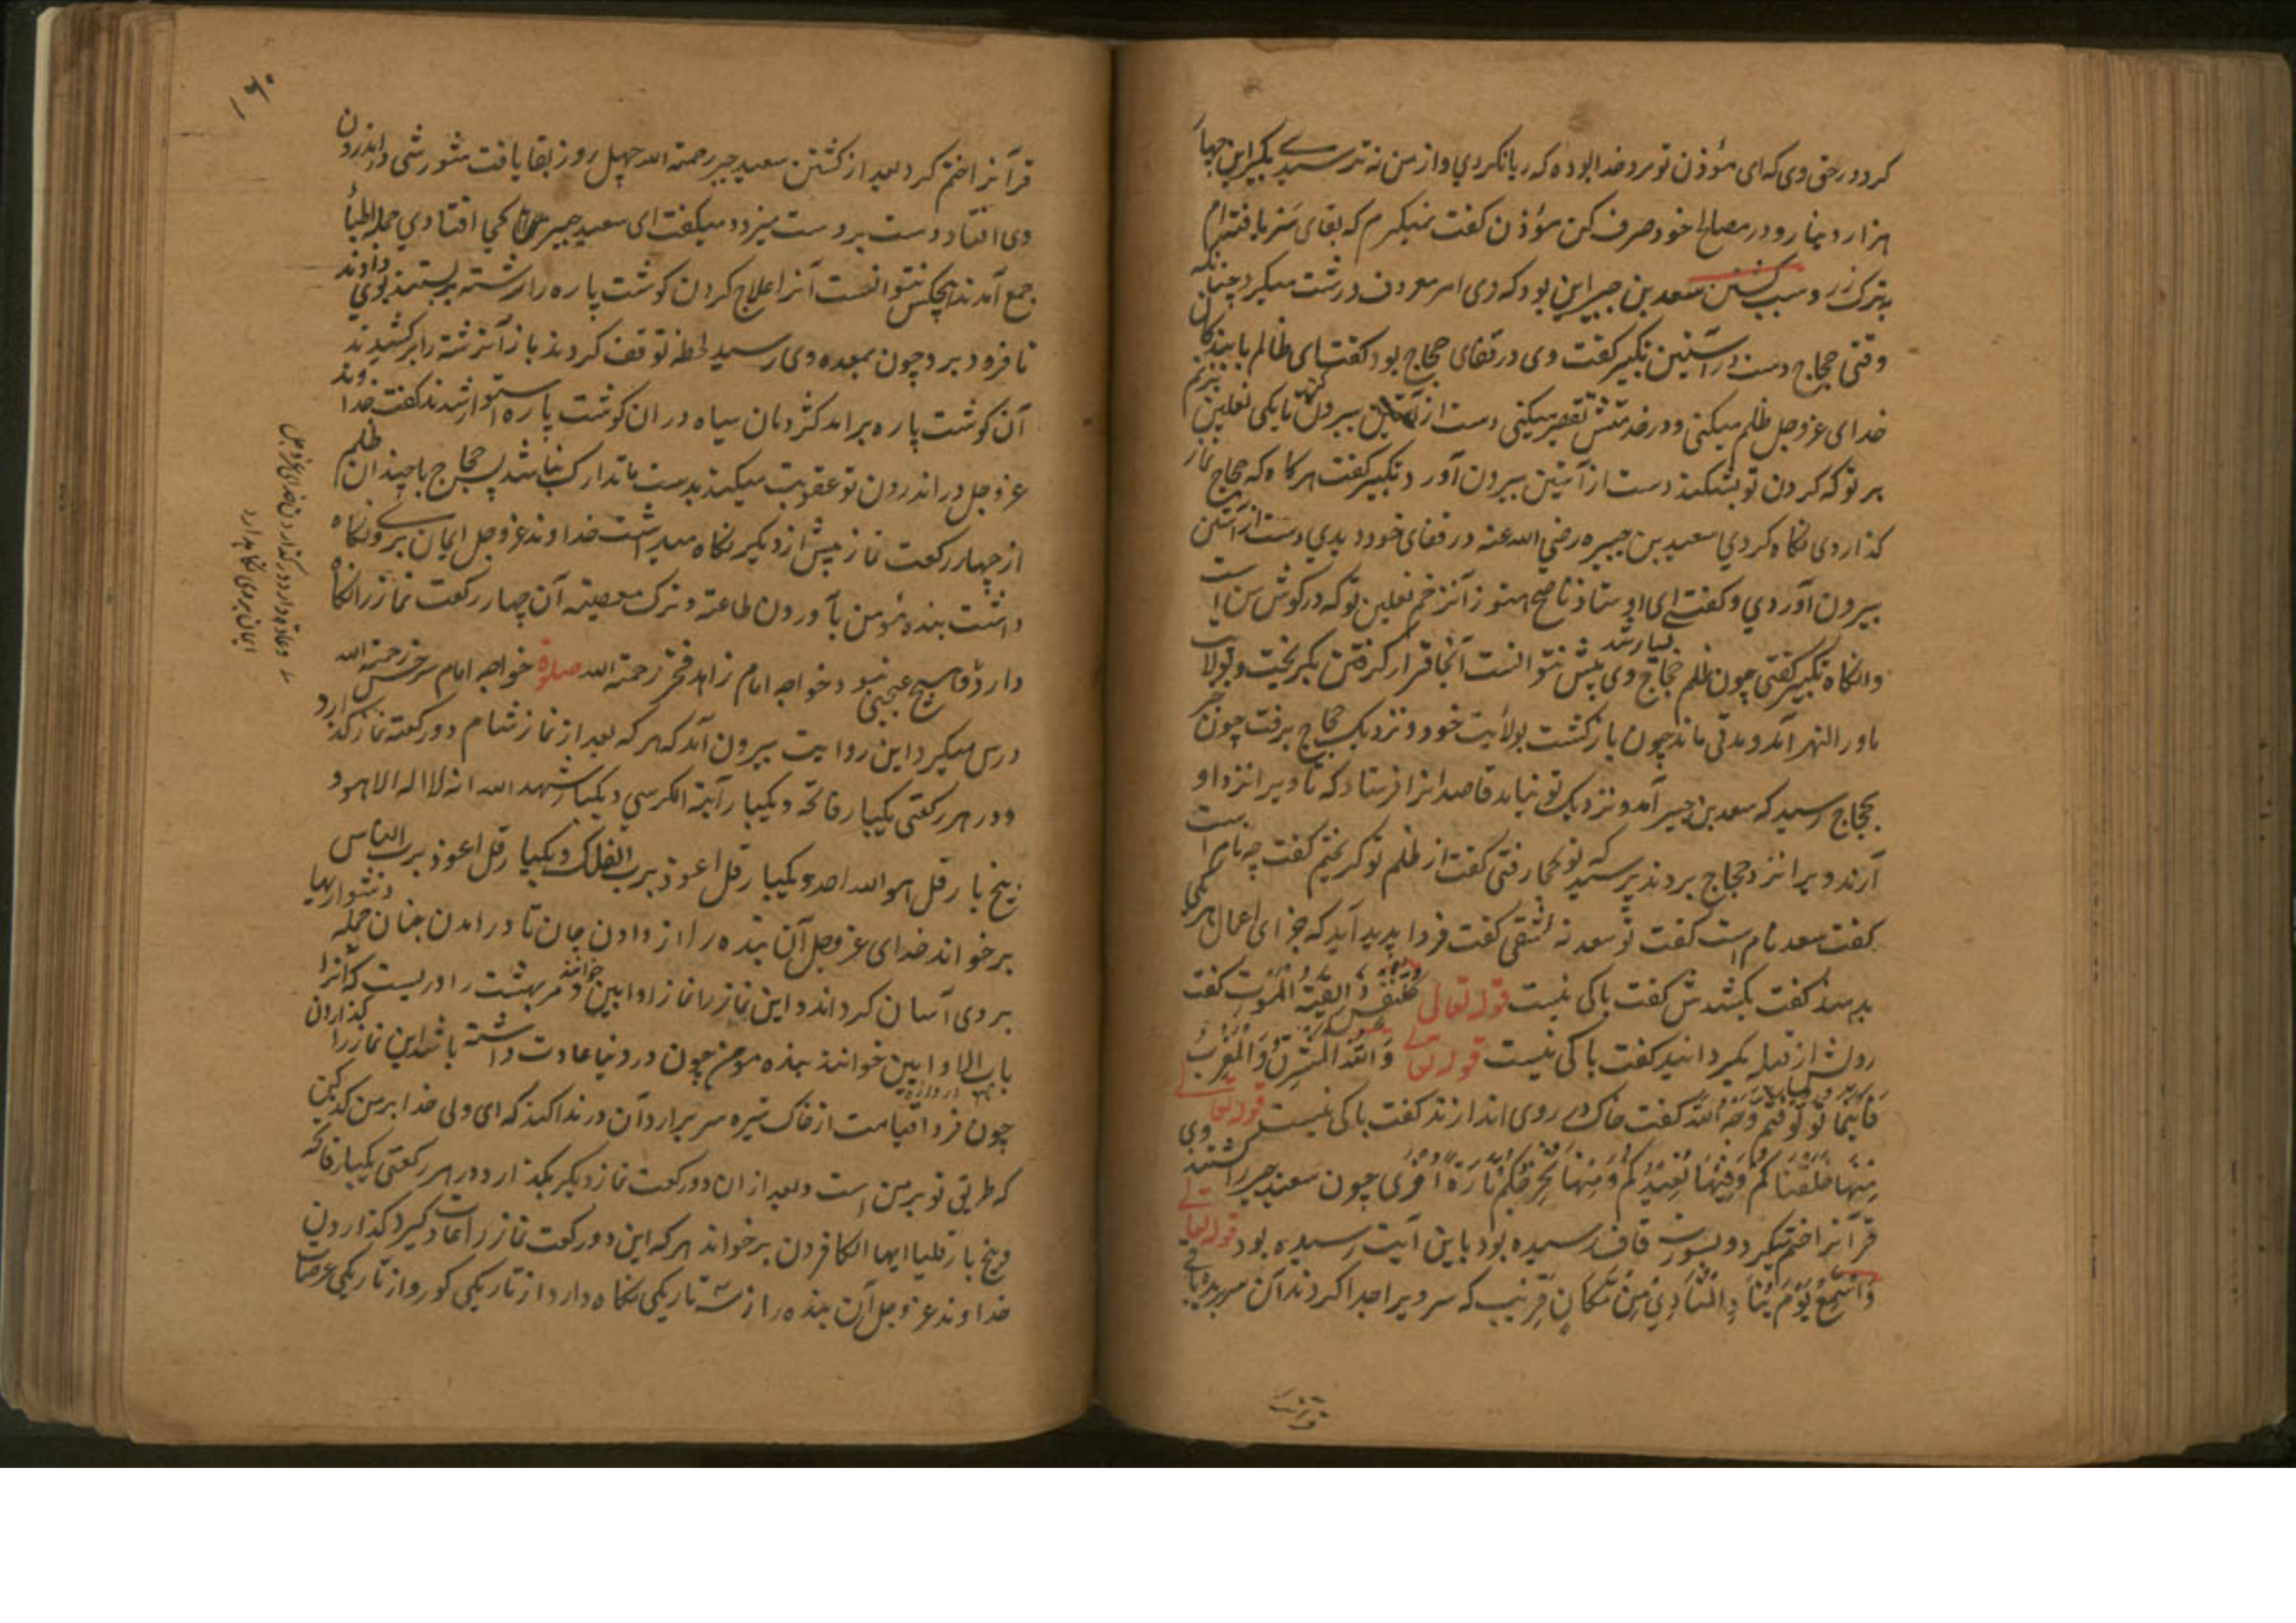 کرد در حق وی که ای مؤذن تو مرد خدا بوده که ریا نکردی و از من نه ترسیدے بگیر این چهار
هزار دینار و در مصالح خود صرف کن مؤذن گفت نمیگیرم که بقای ستر یافته ام
بترک زر و سبب کشتن سعد بن جبیر این بود که وی امر معروف درشت میکرد چنانکه
وقتی حجاج دست در آستین تکبیر گفت وی در قفای حجاج بود گفت ای ظالم با بندگان
خدای عزوجل ظلم میکنی و در خدمتش تقصیر میکنی دست از آستین بیرون کن تا یکی نعلین بزنم
بر تو که گردن تو بشکند دست از آستین بیرون آورد و تکبیر گفت هرگاه که حجاج نماز
گذاردی نگاه کردی سعید بن جبیره رضی الله عنه در قفای خود دیدی دست از آستین
بیرون آوردی و گفتے ای اوستاد ناصح هنوز آنزخم نعلین تو که در گوش من است
وانگاه تکبیر گفتی چون ظلم حجاج بسیار شد وی پیش نتوانست آنجا قرار گرفتن بگریخت و بولایت
ماورالنهر آمد و مدتی ماند چون بازگشت بولائیت خود و نزدیک حجاج برفت چون خبر
بحجاج رسید که سعد بن جبیر آمد و نزدیک تو نیامد قاصدانرا فرستاد که تا ویرا نزد او
آرند ویرا نزد حجاج بردند پرسید که تو کجا رفتی گفت از ظلم تو گریختم گفت چه نام است
گفت سعد نام است گفت تو سعد نه اشقی گفت فردا پدید آید که جزای اعمال هر کسی
بدهند گفت بکشدش گفت باکی نیست قوله تعالی کل نفس ذائقة الموت گفت
رویش از قبله بگردانید گفت باکی نیست قوله تعالی ولله المشرق والمغرب
فاینما تولوا فثم وجه الله گفت خاک در روی اندازند گفت باکی نیست قوله تعالی
منها خلقناکم وفیها نعیدکم ومنها نخرجکم تارة اخری چون سعید جبیر را کشتند وی
قرآنرا ختم میکرد و بسورت قاف رسیده بود باین آیت رسیده بود قوله تعالی
واستمع یوم یناد المناد من مکان قریب که سر ویرا جدا کردند آن سر بریده باقی
قرآنرا ختم کرد بعد از کشتن سعید جبیر رحمة الله چهل روز بقا یافت شورشی در اندرون
وی افتاد دست بر دست میزد و میگفت ای سعید جبیر مرا کجا افتادی جمله اطبا
جمع آمدند هیچکس نتوانست آنرا علاج کردن گوشت پاره را رشته بر بستند بوی دادند
تا فرود برد چون بمعده وی رسید لحظه توقف کردند باز آنرشته را برکشیدند
آن گوشت پاره برامد کژدمان سیاه در ان گوشت پاره استوار شدند گفت خداوند
عزوجل در اندرون تو عقوبت میکند بدست ما تدارک نباشد پس حجاج با چندان ظلم
از چهار رکعت نماز پیش از دیگر نگاه میداشت خداوند عزوجل ایمان برو نگاه
داشت بنده مؤمن بآوردن طاعته و ترک معصیته آن چهار رکعت نماز را نگاه
دارد هیچ عجبی نبود خواجه امام زاهد فخر رحمة الله صلوة خواجه امام سرخس رحمة الله
درس میگیرد این روایت بیرون آمد که هر که بعد از نماز شام دو رکعته نماز گذارد
و در هر رکعتی یکبار فاتحه و یکبار آیة الکرسی و یکبار شهد الله انه لا اله الا هو و
پنج بار قل هو الله احد و یکبار قل اعوذ برب الفلک و یکبار قل اعوذ برب الناس
برخواند خدای عزوجل آن بنده را از دادن جان تا درامدن بجنان جمله دشواریها
بر وی آسان گرداند و این نماز را نماز اوابین خوانند و مر بهشت را دریست که آنرا
باب الاوابین خوانند بنده مومن چون در دنیا عادت داشته باشد این نماز را گذاردن
چون فردا قیامت از خاک تیره سر برارد آن در ندا کند که ای ولی خدا بر من گذر کن
که طریق تو بر من است و بعد از ان دو رکعت نماز دیگر بگذارد و در هر رکعتی یکبار فاتحه
و پنج بار قل یا ایها الکافرون برخواند هر که این دو رکعت نماز را عادت گیرد گذاردن
خداوند عزوجل آن بنده را از سه تاریکی نگاه دارد از تاریکی گور و از تاریکی عرصات